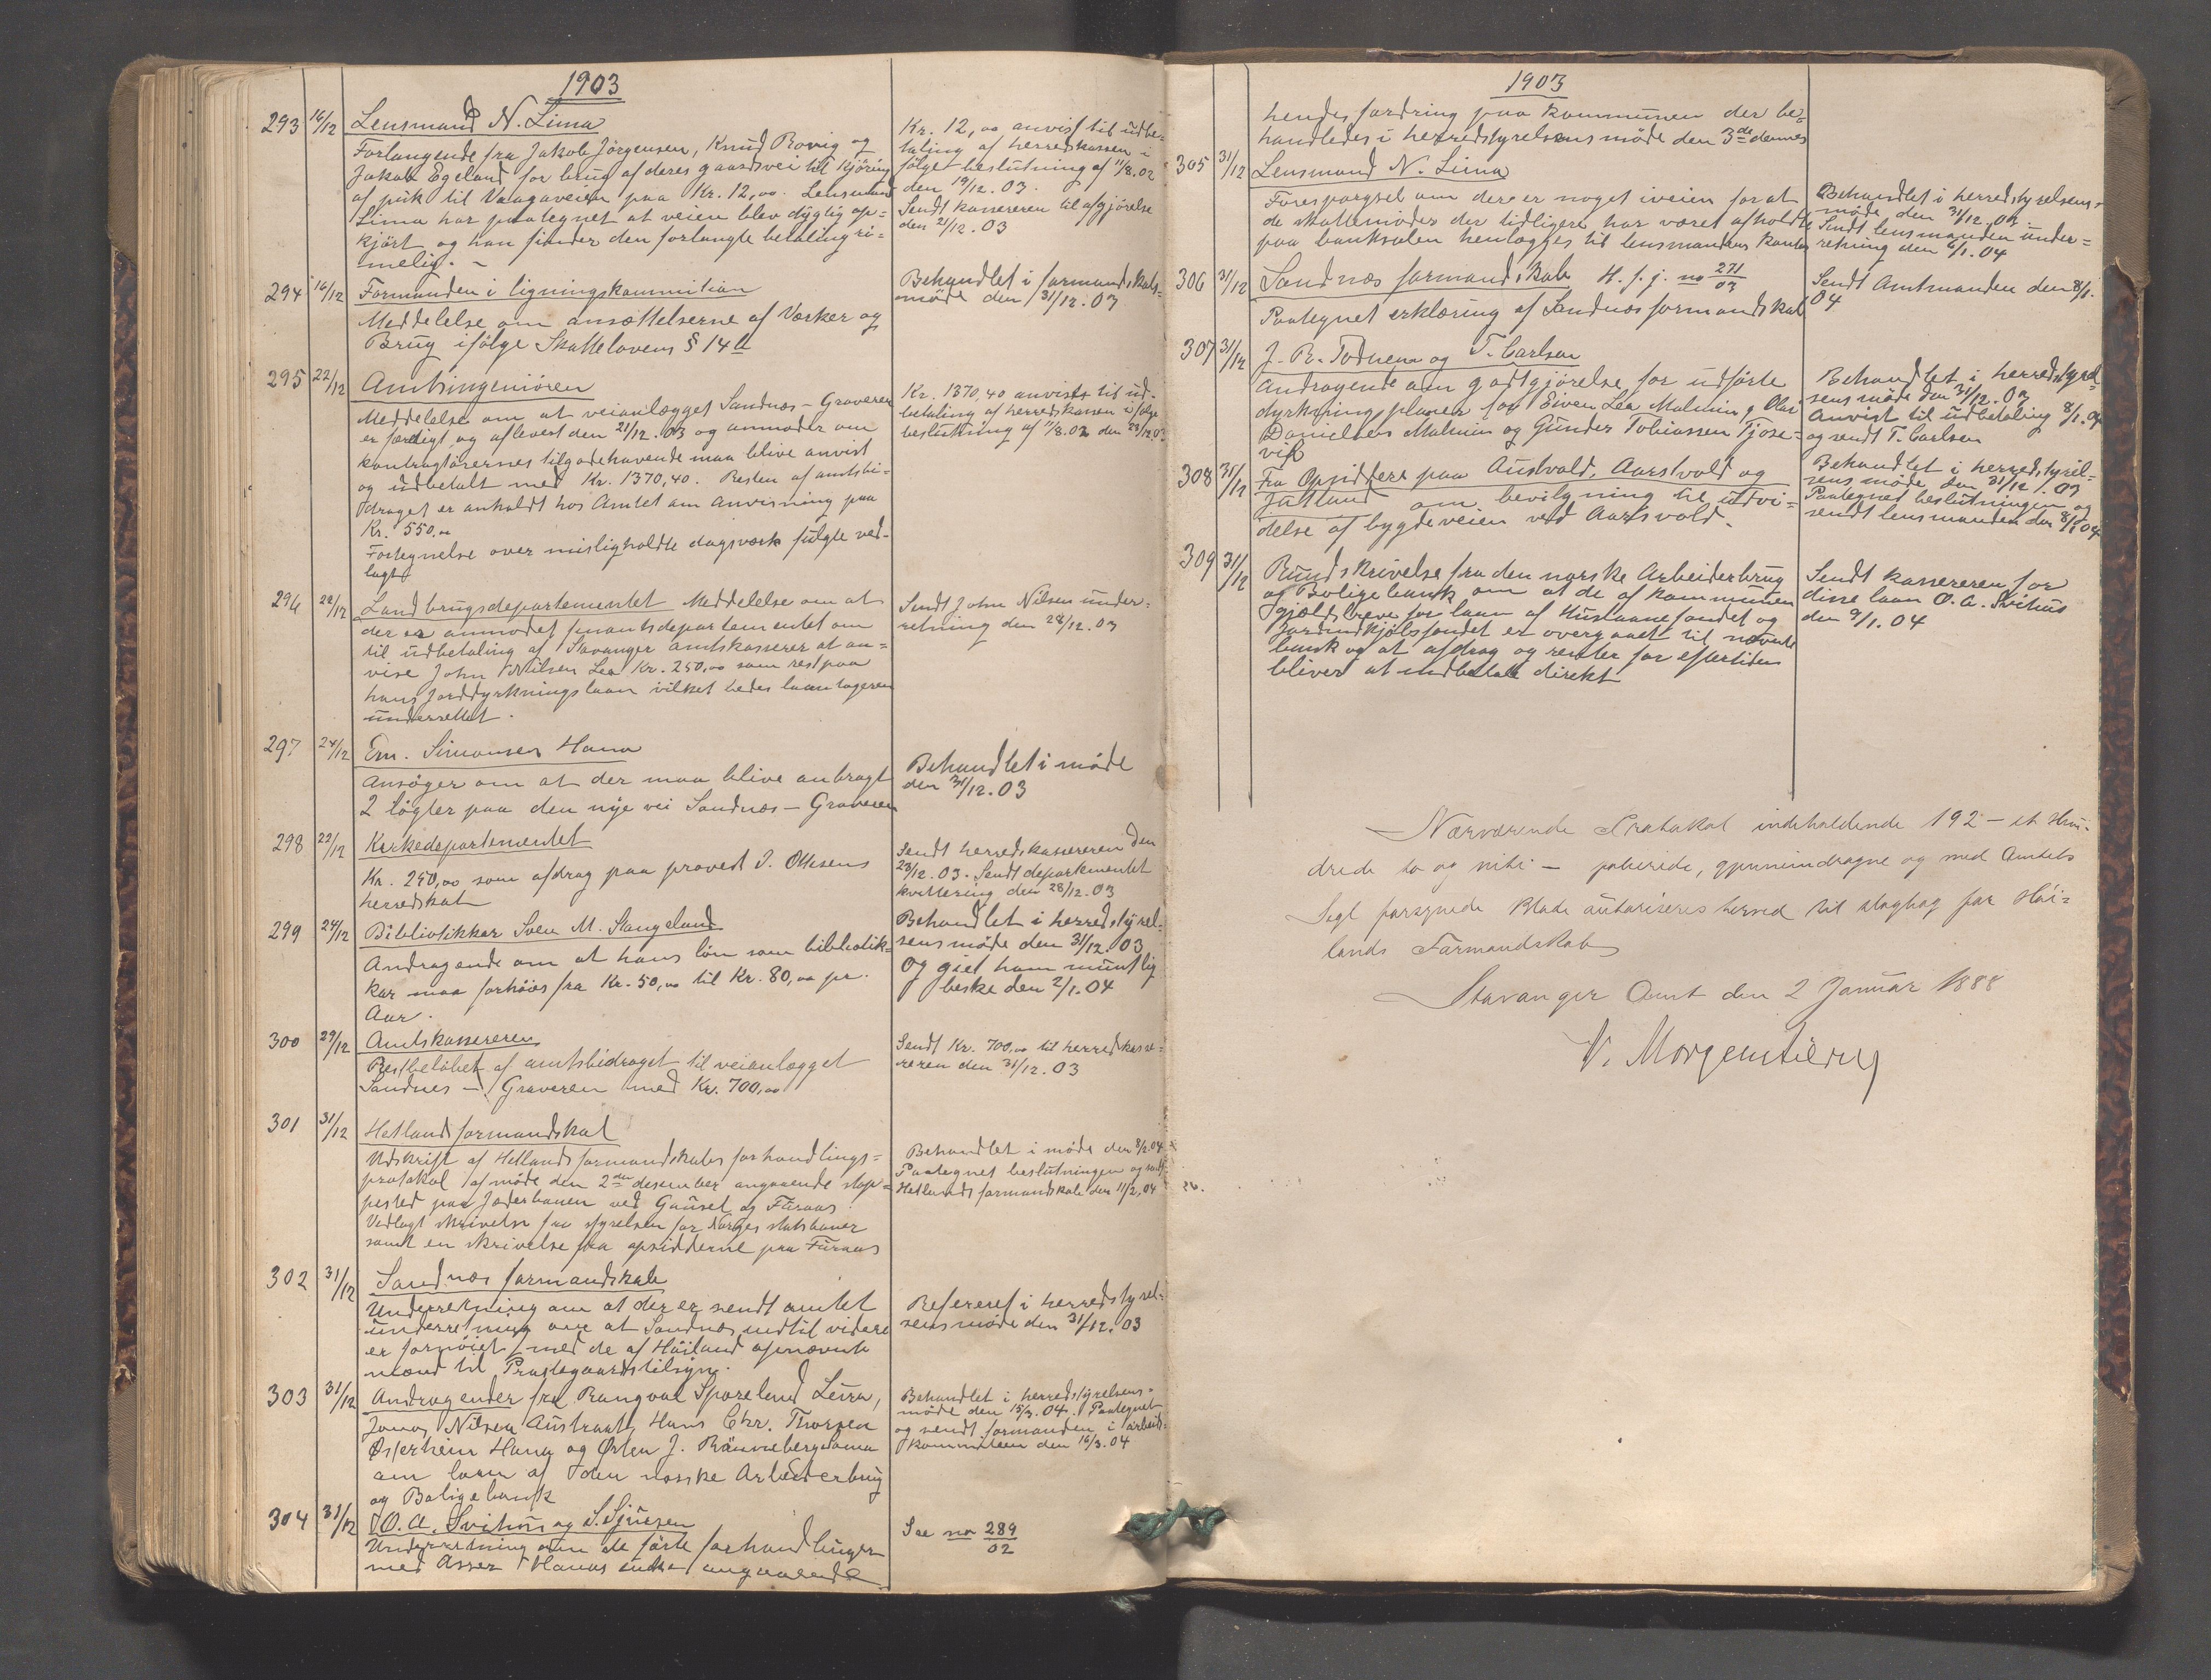 1903
293 16/12 Lensmand N. Lima
Forlangende fra Jakob Jörgensen, Knud Rovig og
Jakob Egeland for brug af deres gaardsvei til kjöring
af puk til Vaagaveien paa Kr. 12,00. Lensmand
Lima har paategnet at veien blev dygtig op=
kjört og han finder den forlangte betaling ri=
melig. -
Kr. 12,00 anvist til udbe-
taling af herredskassen i
følge beslutning af 11/8.02
den 19/12.03.
Sendt kassereren til afgjörelse
den 21/12.03
294 16/12 Formanden i ligningskommitian
Meddelelse om ansættelserne af Værker og
Brug ifölge Skattelovens § 14
Behandlet i formandskabs=
möde den 31/12.03
295 22/12 Amtsingeniören
Meddelelse om at veianlægget Sandnæs - Graveren
er færdigt og aflevert den 21/12.03 og anmoder om
kontraptörernes tilgodehavende maa blive anvist
og udbetalt med Kr. 1370,40. Resten af amtsbi-
draget er anholdt hos Amtet om Anvisning paa
Kr. 550,00
Fortegnelse over misligholdte dagsværk fulgte ved-
lagt
Kr. 1370,40 anvistes til ud-
betaling af herredskassen i følge
beslutning af 11/8.02 den 23/12.03
296 22/12 Landbrugsdepartementet Meddelelse om at
der er anmodet finantsdepartementet om
til udbetaling af Stavanger amtskasserer at an=
vise John Nilsen Lea Kr. 250,00 som rest paa
hans Jorddyrkningslaan vilket bedes laantageren
underrettet.
Sendt John Nilsen under-
retning den 28/12.03
297 24/12 Em. Simonsen Hana
Ansöger om at der maa blive anbragt
2 lögter paa den nye vei Sandnæs - Graveren
Behandlet i möde
den 31/12.03
298 22/12 Kirkedepartementet
Kr. 250,00 som afdrag paa provest I. Ottesens
herredskat
Sendt herredskassereren den
23/12.03. Sendt departementet
kvittering den 28/12.03
299 24/12 Bibliotikkar Sven M. Stangeland
Andragende om at hans lön som bibliotik-
kar maa forhöies fra Kr. 50,00 til Kr. 80,00 pr.
Aar.
Behandlet i herredstyrel-
sens möde den 31/12.03
og giet ham muntlig
beske den 2/1.04
300 29/12 Amtskassereren
Restbelöbet af amtsbidraget til veianlægget
Sandnes - Graveren med Kr. 700,00
Sendt Kr. 700,00 til herredskasse-
reren den 31/12.03
301 31/12 Hetland formandskat
Udskrift af Hetlands formandskabs forhandlings=
protokol af möde den 2den desember angaaende stop=
pested paa Jæderbanen ved Gausel og Füraas
Vedlagt skrivelse fra styrelsen for Norges statsbaner
samt en skrivelse fra opsidderne paa Füraas
Behandlet i möde den 8/2.04
Paategnet beslutningen og sendt
Hetlands formandskab den 11/2.04
302 31/12 Sandnæs formandskab
Underretning om at der er sendt amtet
underretning om at Sandnæs indtil videre
er fornöiet med de af Höiland opnævnte
mænd til Præstegaardstilsyn.
Refereret i herredstyrel-
sens möde den 31/12.03
303 31/12 Andragender fra Rangval Spareland Leira,
Jonas Nilsen Austraat, Hans Chr. Thorsen
Østerheim Hana og Østen J. Rønneberg Soma
om laan af den norske Arbeiderbrug
og Boligebank
Behandlet i herredstyrelsens-
möde den 15/3.04. Paategnet
og sendt formanden i arbeids-
kommiteen den 16/3.04
304 31/12 O. A. Svihus og S. Sjursen
Underretning om de förte forhandlinger
med Asser Hanas enke angaaende
See no 289/02
1903
hendes fordring paa kommunen der be=
handledes i herredstyrelsens möde den 3de dennes
305 31/12 Lensmand N. Lima
Forespørgsel om der er noget iveien for at
de skattemöder der tidligere har været afholdte
paa banksalen henlægges til lensmandens kontor
Behandlet i herredstyrelsens-
möde den 31/12.03.
Sendt lensmanden under=
retning den 6/1.04
306 31/12 Sandnæs formandskab H. f. j. no 271/03
Paategnet erklæring af Sandnæs formandskab
Sendt Amtmanden den 8/1.
04
307 31/12 J. R. Todnem og T. Carlsen
Andragende om godtgjörelse for udförte
dyrkningsplaner for Eiven Lea Malmin, Olai
Danielsen Malmin og Gunder Tobiassen Tjose=
vik
Behandlet i herredstyrel=
sens möde den 31/12.03
Anvist til udbetaling 8/1.04
og sendt T. Carlsen
308 31/12 Fra Opsiddere paa Austvold, Aarsvold og
Jutland om bevilgning til udvi=
delse af bygdeveien ved Aarsvold.
Behandlet i herredstyrel-
sens möde den 31/12.03
Paategnet beslutningen og
sendt lensmanden den 8/1 04
309 31/12 Rundskrivelse fra den norske Arbeiderbrug
og Boligebank om at de af kommunen
gjældsbreve for laan af Husmannefondet og
Jordindkjøbsfondet er overgaaet til nævnte
bank og at afdrag og renter for eftertiden
bliver at indbetale direkt
Sendt kassereren for
disse laan O. A. Svihus
den 9/1.04
Nærværende Protokol indeholdende 192 - et Hun-
drede to og niti - paberede, gjennemdragne og med Amtets
Segl forsynede Blade autoriseres herved til dagbog for Høi=
lands Formandskab
Stavanger Amt den 2 Januar 1888
V. Morgenstierne